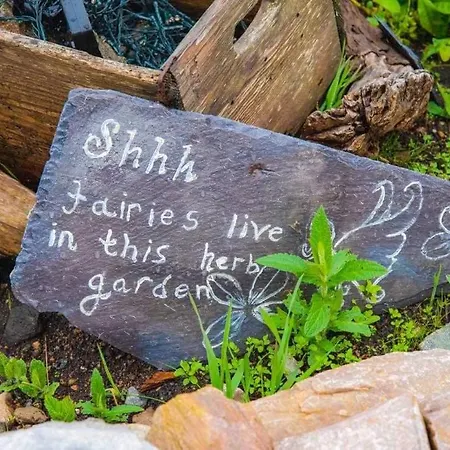 Shhh
fairies live
in this herb
garden.